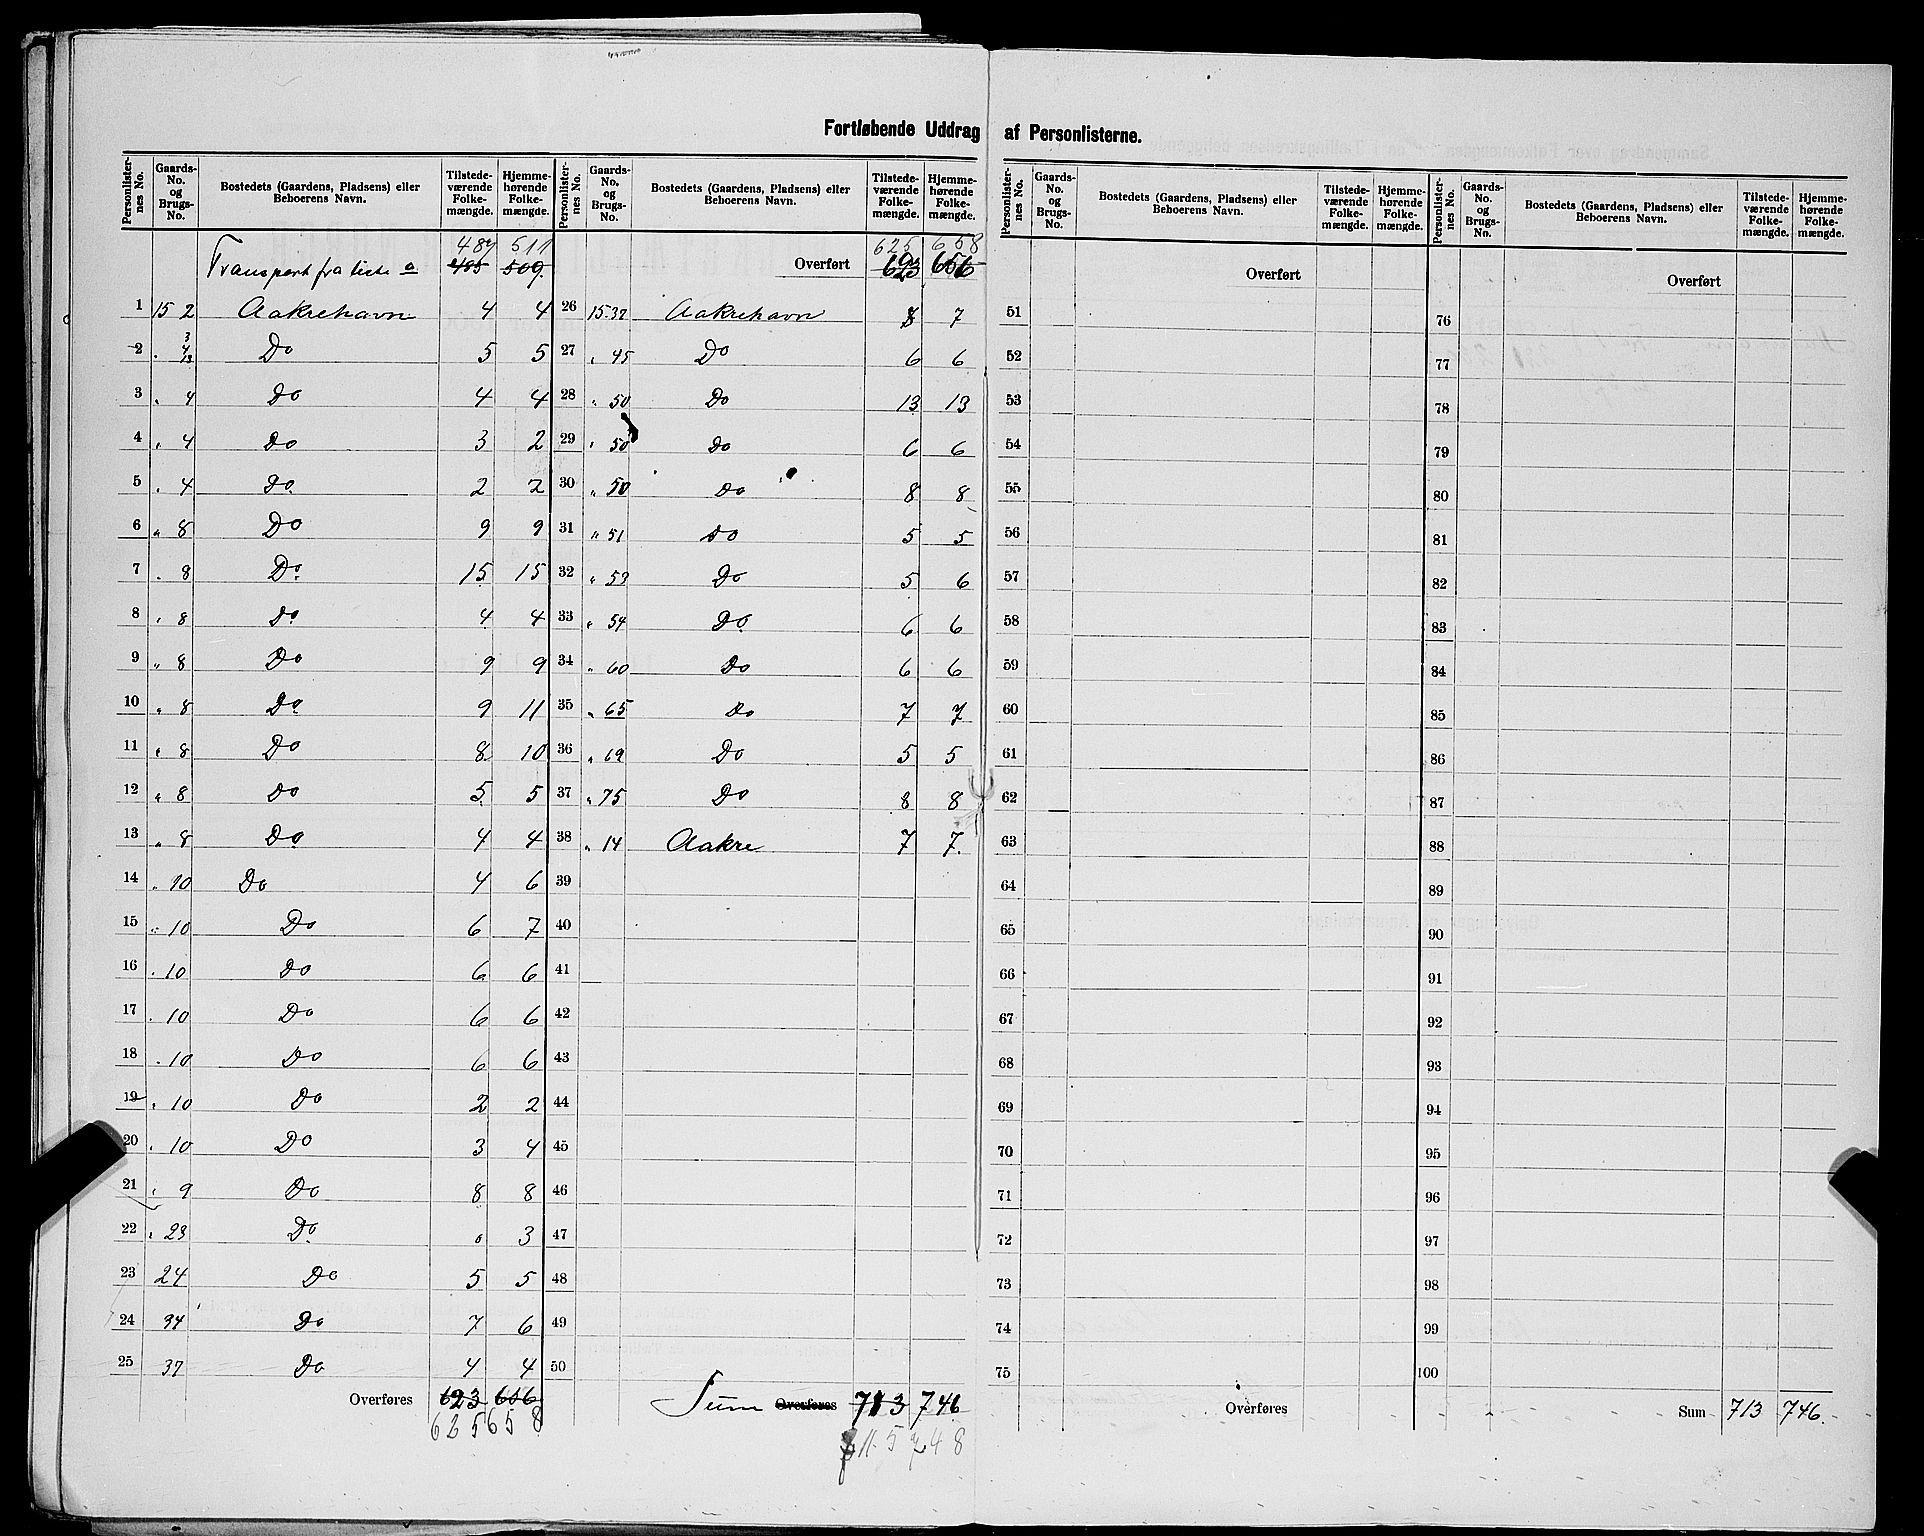 Fortløbende Uddrag af Personlisterne.
Personlister-nes No. Gaards-No. og Brugs-No. Bostedets (Gaardens, Pladsens) eller Beboerens Navn. Tilstede-værende Folke-mængde. Hjemme-hørende Folke-mængde.
487 511
Transport fra liste a 485 509.
1 15 2 Aakrehavn 4 4
2 " 3 4 13 Do 5 5
3 " 4 Do 4 4
4 " 4 Do 3 2
5 " 4 Do 2 2
6 " 8 Do 9 9
7 " 8 Do 15 15
8 " 8 Do 4 4
9 " 8 Do 9 9
10 " 8 Do 9 11
11 " 8 Do 8 10
12 " 8 Do 5 5
13 " 8 Do 4 4
14 " 10 Do 4 6
15 " 10 Do 6 7
16 " 10 Do 6 6
17 " 10 Do 6 6
18 " 10 Do 6 6
19 " 10 Do 2 2
20 " 10 Do 3 4
21 " 9 Do 8 8
22 " 23 Do 0 3
23 24 Do 5 5
24 34 Do 7 6
25 37 Do 4 4
Overføres 623 656
625 658
Personlister-nes No. Gaards-No. og Brugs-No. Bostedets (Gaardens, Pladsens) eller Beboerens Navn. Tilstede-værende Folke-mængde. Hjemme-hørende Folke-mængde.
625 658
Overført 623 656
26 15.37 Aakrehavn 8 7
27 " 45 Do 6 6
28 " 50 Do 13 13
29 " 50 Do 6 6
30 " 50 Do 8 8
31 " 51 Do 5 5
32 " 53 Do 5 6
33 " 54 Do 6 6
34 " 60 Do 6 6
35 " 65 Do 7 7
36 " 69 Do 5 5
37 " 75 Do 8 8
38 " 14 Aakre 7 7.
39
40
41
42
43
44
45
46
47
48
49
50
Sum Overføres 713 746
715 748
Personlister-nes No. Gaards-No. og Brugs-No. Bostedets (Gaardens, Pladsens) eller Beboerens Navn. Tilstede-værende Folke-mængde. Hjemme-hørende Folke-mængde.
Overført
51
52
53
54
55
56
57
58
59
60
61
62
63
64
65
66
67
68
69
70
71
72
73
74
75
Overføres
Personlister-nes No. Gaards-No. og Brugs-No. Bostedets (Gaardens, Pladsens) eller Beboerens Navn. Tilstede-værende Folke-mængde. Hjemme-hørende Folke-mængde.
Overført
76
77
78
79
80
81
82
83
84
85
86
87
88
89
90
91
92
93
94
95
96
97
98
99
100
Sum 713 746.